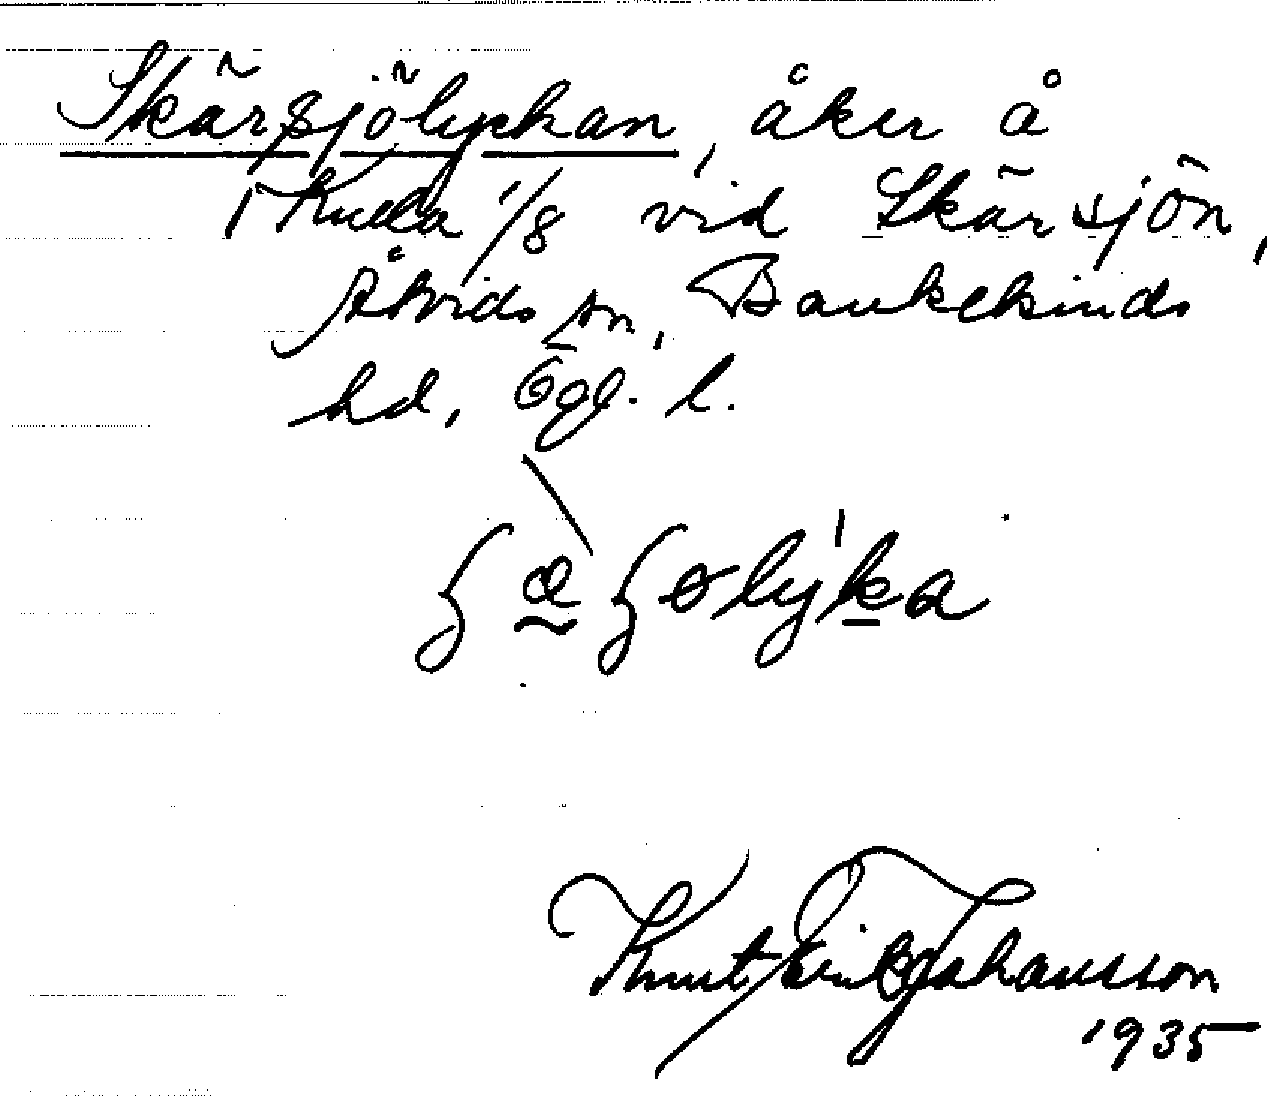 Skärsjölyckan, åker å
Kulla 1/8 vid Skärsjön,
Åtvids sn, Bankekinds
hd, Ögl. l.
Knut Erik Johansson
1935